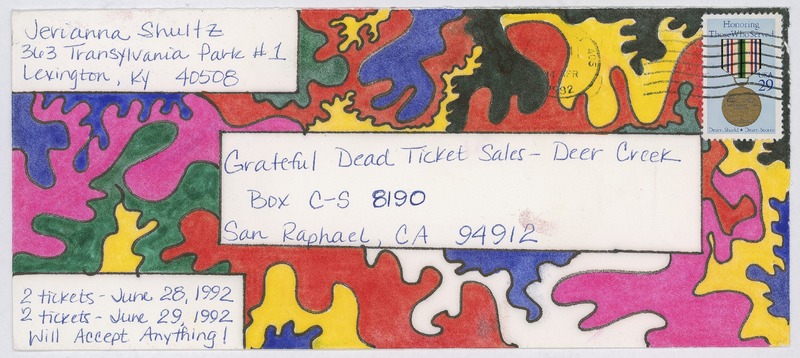 Jerianna Shultz
363 Transylvania Park #1
Lexington, KY 40508
APR
1992
Honoring
Those Who Served
USA
29
Desert Shield • Desert Storm
Grateful Dead Ticket Sales - Deer Creek
Box C-S 8190
San Raphael, CA 94912
2 tickets - June 28, 1992
2 tickets - June 29, 1992
Will Accept Anything!